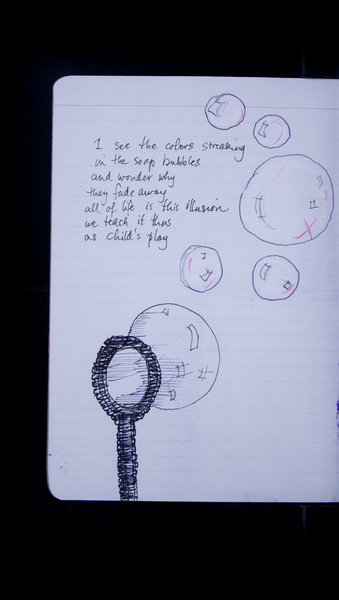 I see the colors streaking
in the soap bubbles
and wonder why
they fade away
all of life is this illusion
we teach it thus
as child's play